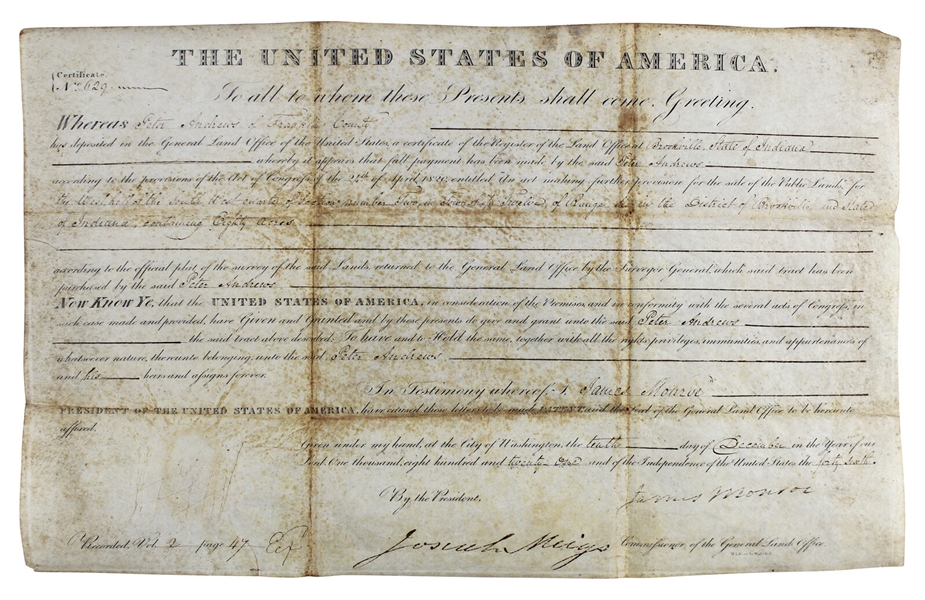 THE UNITED STATES OF AMERICA.
Certificate
No. 629
To all to whom these Presents shall come, Greeting.
Whereas Peter Andrews of County
has deposited in the General Land Office of the United States, a certificate of the Register of the Land Office at Brookville State of Indiana
whereby it appears that full payment has been made by the said Peter Andrews
according to the provisions of the Act of Congress of the 24th of April 1820, entitled, An act making further provision for the sale of the Public Lands, for
the West half of the South West quarter of Section number Two, in Township of Range in the District of Brookville and State
of Indiana, containing Eighty acres
according to the official plat of the survey of the said Lands, returned to the General Land Office by the Surveyor General, which said tract has been
purchased by the said Peter Andrews
Now Know Ye, that the UNITED STATES OF AMERICA, in consideration of the Premises, and in conformity with the several acts of Congress, in
such case made and provided, have Given and Granted and by these presents do give and grant unto the said Peter Andrews
the said tract above described: To have and to Hold the same, together with all the rights, privileges, immunities, and appurtenances of
whatsoever nature, thereunto belonging, unto the said Peter Andrews
and his heirs and assigns forever.
In Testimony whereof, I, James Monroe
PRESIDENT OF THE UNITED STATES OF AMERICA, have caused these letters to be made PATENT, and the Seal of the General Land Office to be hereunto
affixed.
Given under my hand, at the City of Washington, the tenth day of December in the Year of our
Lord, One thousand, eight hundred and twenty-One and of the Independence of the United States the forty sixth.
By the President,
James Monroe
Recorded, Vol. 2 page 47
Josiah Meigs Commissioner of the General Land Office